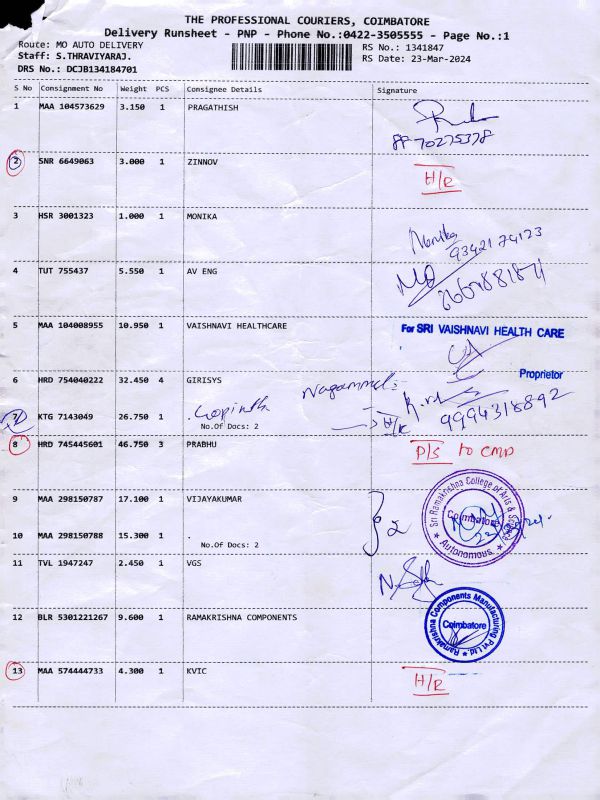 THE PROFESSIONAL COURIERS, COIMBATORE
Delivery Runsheet - PNP - Phone No.:0422-3505555 - Page No.:1
Route: MO AUTO DELIVERY RS No.: 1341847
Staff: S.THRAVIYARAJ. RS Date: 23-Mar-2024
DRS No.: DCJB134184701
S No Consignment No Weight PCS Consignee Details Signature
1 MAA 104573629 3.150 1 PRAGATHISH
2 SNR 6649063 3.000 1 ZINNOV H/R
3 HSR 3001323 1.000 1 MONIKA Monika
9342174123
4 TUT 755437 5.550 1 AV ENG
5 MAA 104008955 10.950 1 VAISHNAVI HEALTHCARE For SRI VAISHNAVI HEALTH CARE
Proprietor
6 HRD 754040222 32.450 4 GIRISYS
9994318892
7 KTG 7143049 26.750 1 . Gopinath H/R
No.Of Docs: 2
8 HRD 745445601 46.750 3 PRABHU P/S to CMP
9 MAA 298150787 17.100 1 VIJAYAKUMAR
2
Sri Ramakrishna College of Arts &
Coimbatore
Autonomous
10 MAA 298150788 15.300 1 .
No.Of Docs: 2
11 TVL 1947247 2.450 1 VGS
12 BLR 5301221267 9.600 1 RAMAKRISHNA COMPONENTS
Ramakrishna Components Manufacturing Pvt Ltd
Coimbatore
13 MAA 574444733 4.300 1 KVIC H/R